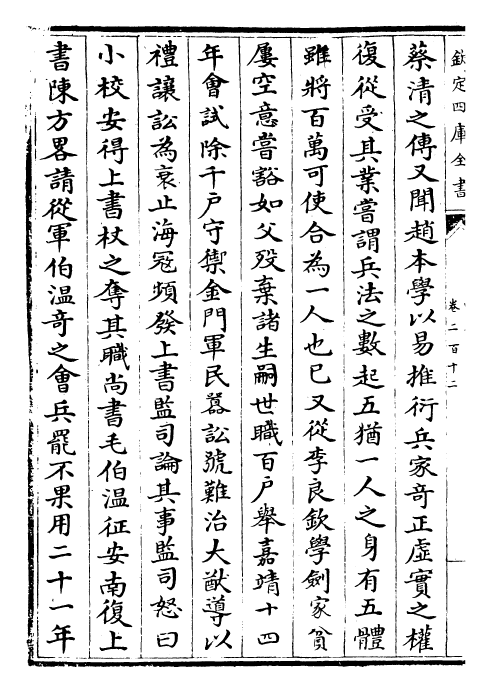 欽定四庫全書
卷二百十二
蔡清之傳又聞趙本學以易推衍兵家奇正虛實之權
復從受其業嘗謂兵法之數起五猶一人之身有五體
雖將百萬可使合為一人也已又從李良欽學劍家貧
屢空意嘗豁如父歿棄諸生嗣世職百戶舉嘉靖十四
年會試除千戶守禦金門軍民囂訟號難治大猷導以
禮讓訟為衰止海冦頻發上書監司論其事監司怒曰
小校安得上書杖之奪其職尚書毛伯溫征安南復上
書陳方畧請從軍伯溫奇之會兵罷不果用二十一年